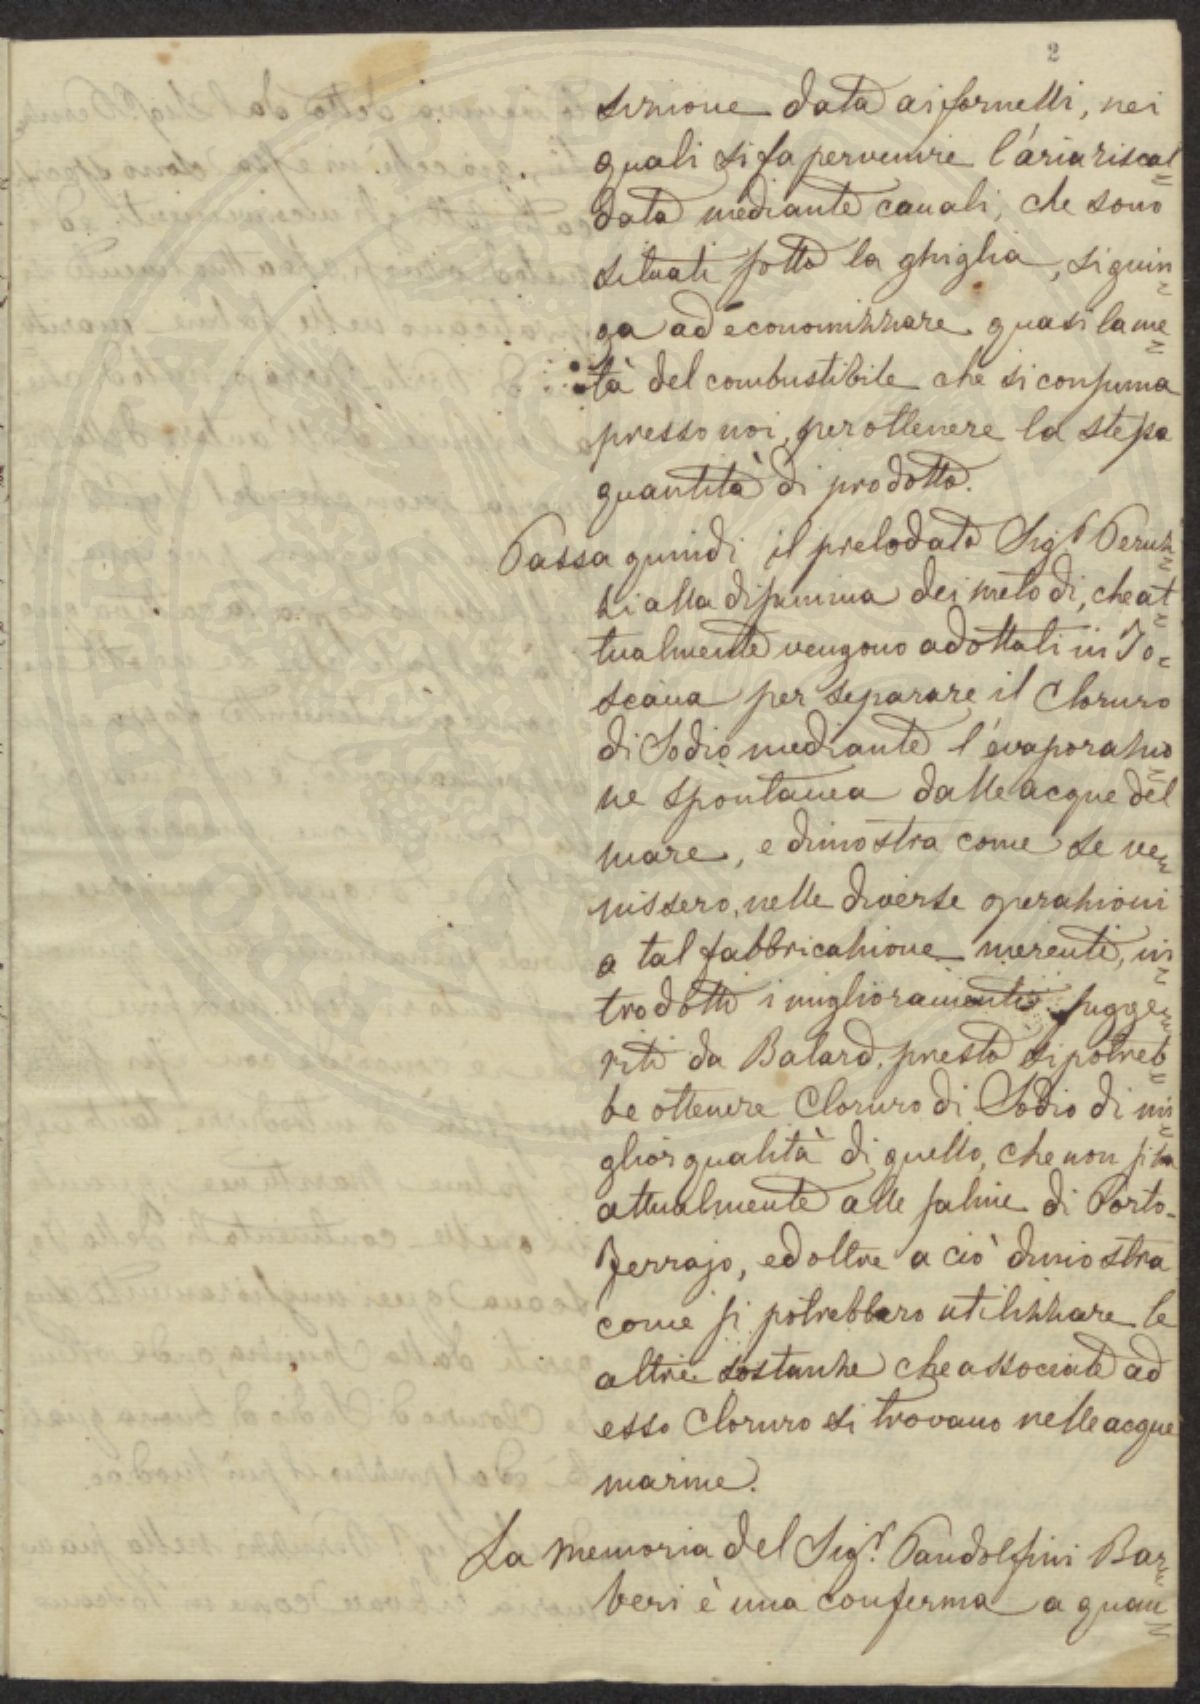 2
sizione data ai fornelli, nei
quali si fa pervenire l'aria riscal=
data mediante canali, che sono
situati sotto la ghiglia, si giun=
ga ad economizzare quasi la me=
tà del combustibile che si consuma
presso noi, per ottenere la stessa
quantità di prodotto.
Passa quindi il prelodato Sig.r Peruz=
zi alla disamina dei metodi, che at=
tualmente vengono adottati in To=
scana per separare il Cloruro
di Sodio mediante l'evaporazio=
ne spontanea dalle acque del
mare, e dimostra come se ve=
nissero, nelle diverse operazioni
a tal fabbricazione inerenti, in=
trodotti i miglioramenti sugge=
riti da Balard, presto si potreb=
be ottenere Cloruro di Sodio di mi=
glior qualità di quello, che non si ha
attualmente alle saline di Porto-
Ferrajo, ed oltre a ciò dimostra
come si potrebbero utilizzare le
altre sostanze che associate ad
esso Cloruro si trovano nelle acque
marine.
La memoria del Sig.r Pandolfini Bar=
beri è una conferma a quan=